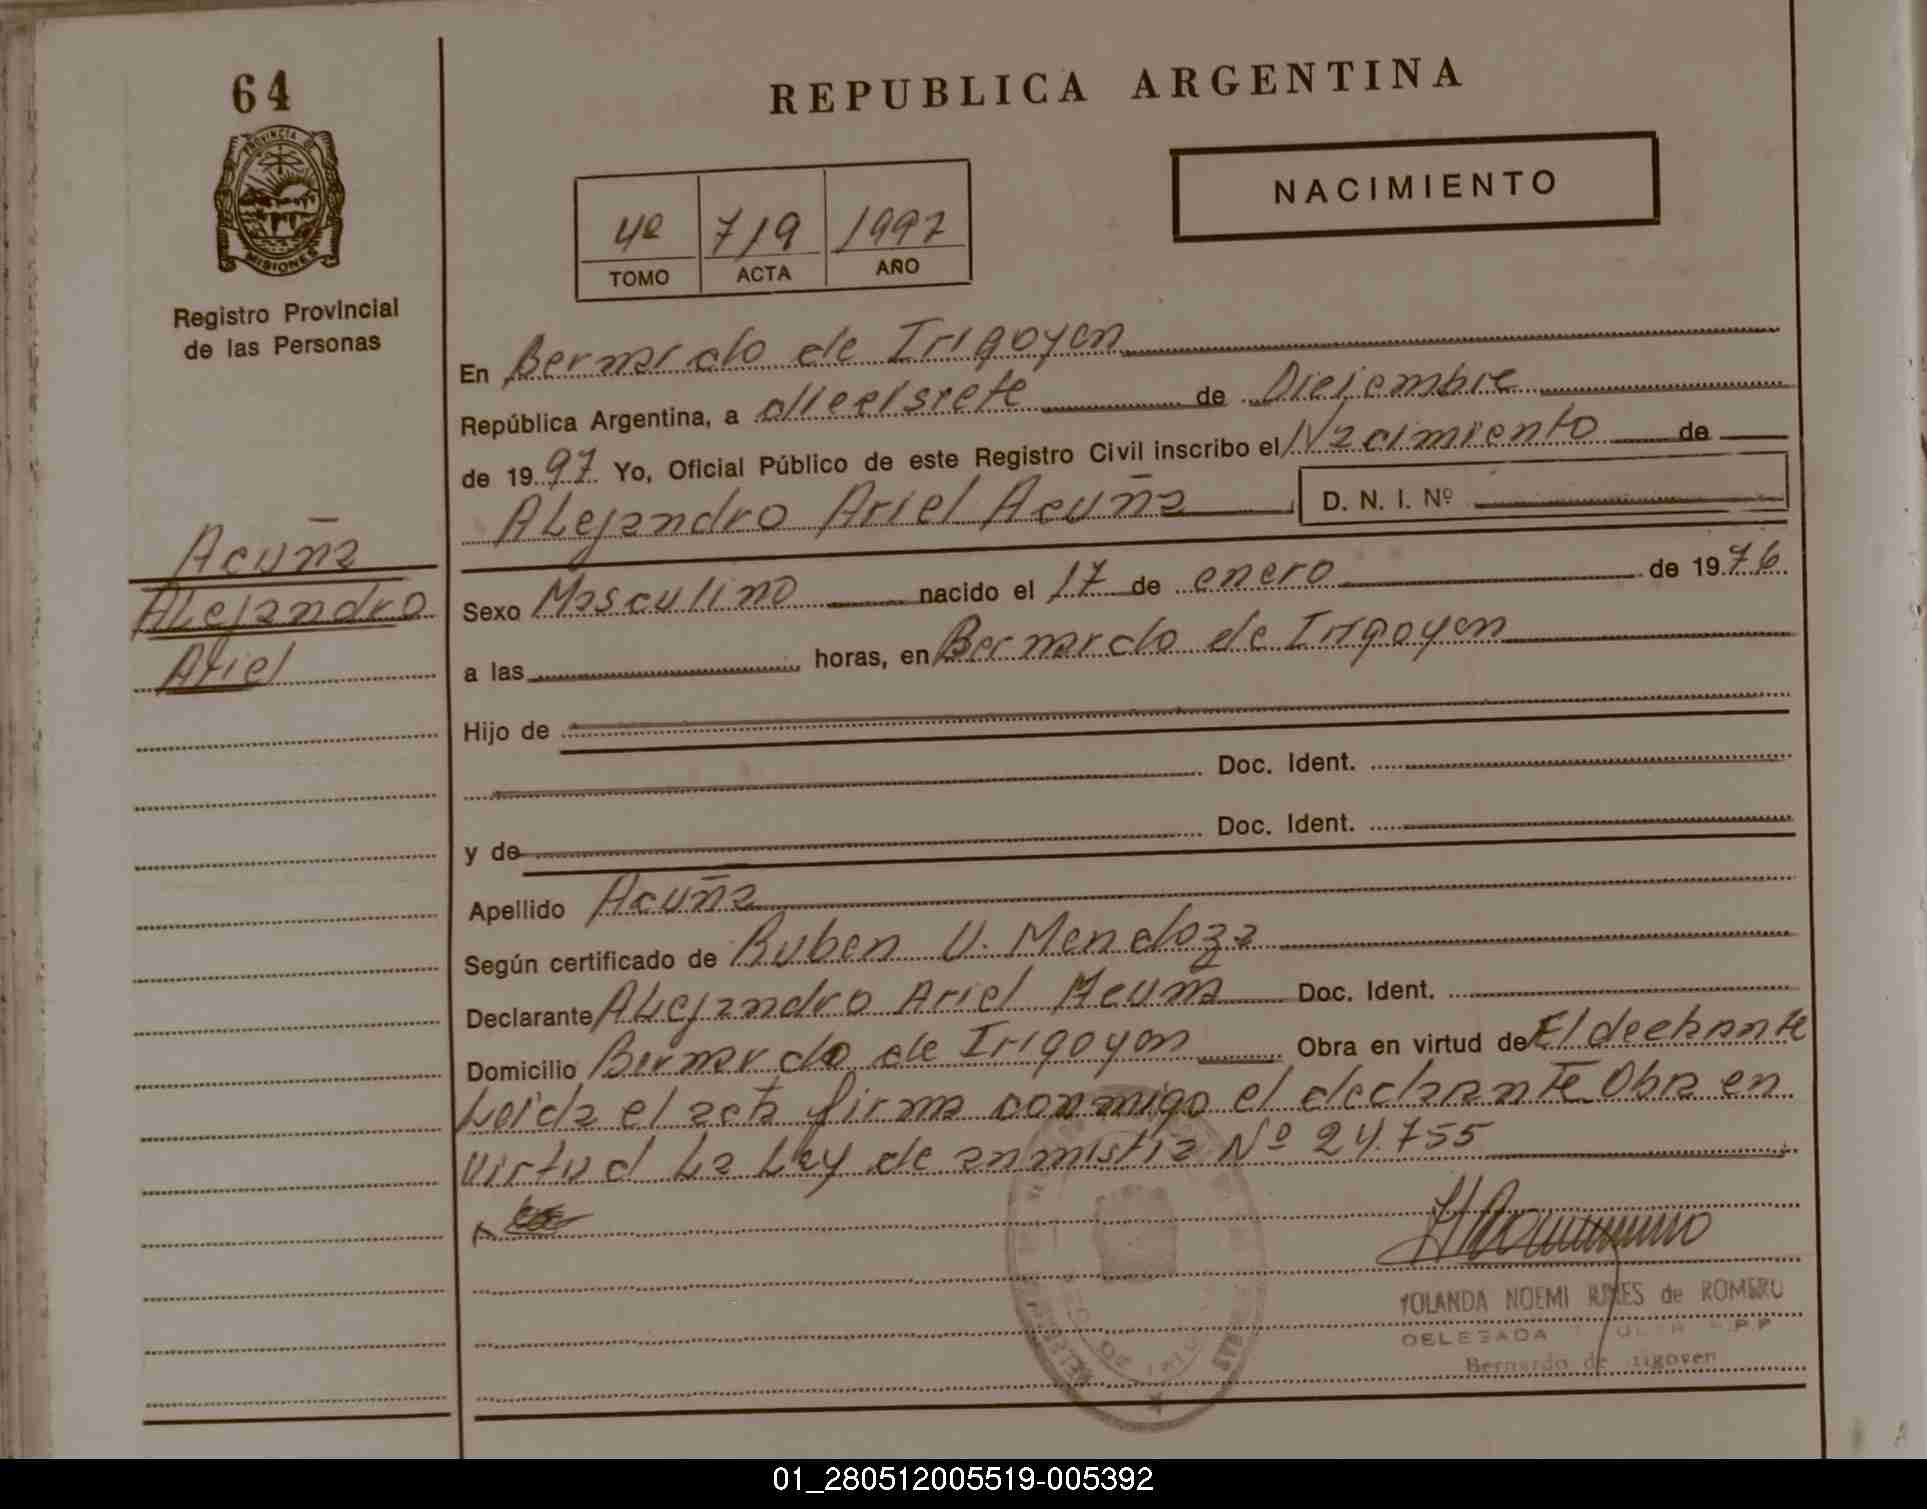 64
PROVINCIA DE
MISIONES
Registro Provincial
de las Personas
REPUBLICA ARGENTINA
NACIMIENTO
4º 719 1997
TOMO ACTA AÑO
En Bernardo de Irigoyen
República Argentina, a diecisiete de Diciembre
de 1997 Yo, Oficial Público de este Registro Civil inscribo el Nacimiento de
Alejandro Ariel Acuña D. N. I. Nº
Acuña
Alejandro
Ariel
Sexo Masculino nacido el 17 de enero de 1976
a las horas, en Bernardo de Irigoyen
Hijo de
Doc. Ident.
y de Doc. Ident.
Apellido Acuña
Según certificado de Ruben U. Mendoza
Declarante Alejandro Ariel Acuña Doc. Ident.
Domicilio Bernardo de Irigoyen Obra en virtud de El declarante
Leida el acta firma conmigo el declarante Obra en
virtud La Ley de anmistia Nº 24.755
YOLANDA NOEMI de ROMERO
DELEGADA
Bernardo de Irigoyen
01_280512005519-005392